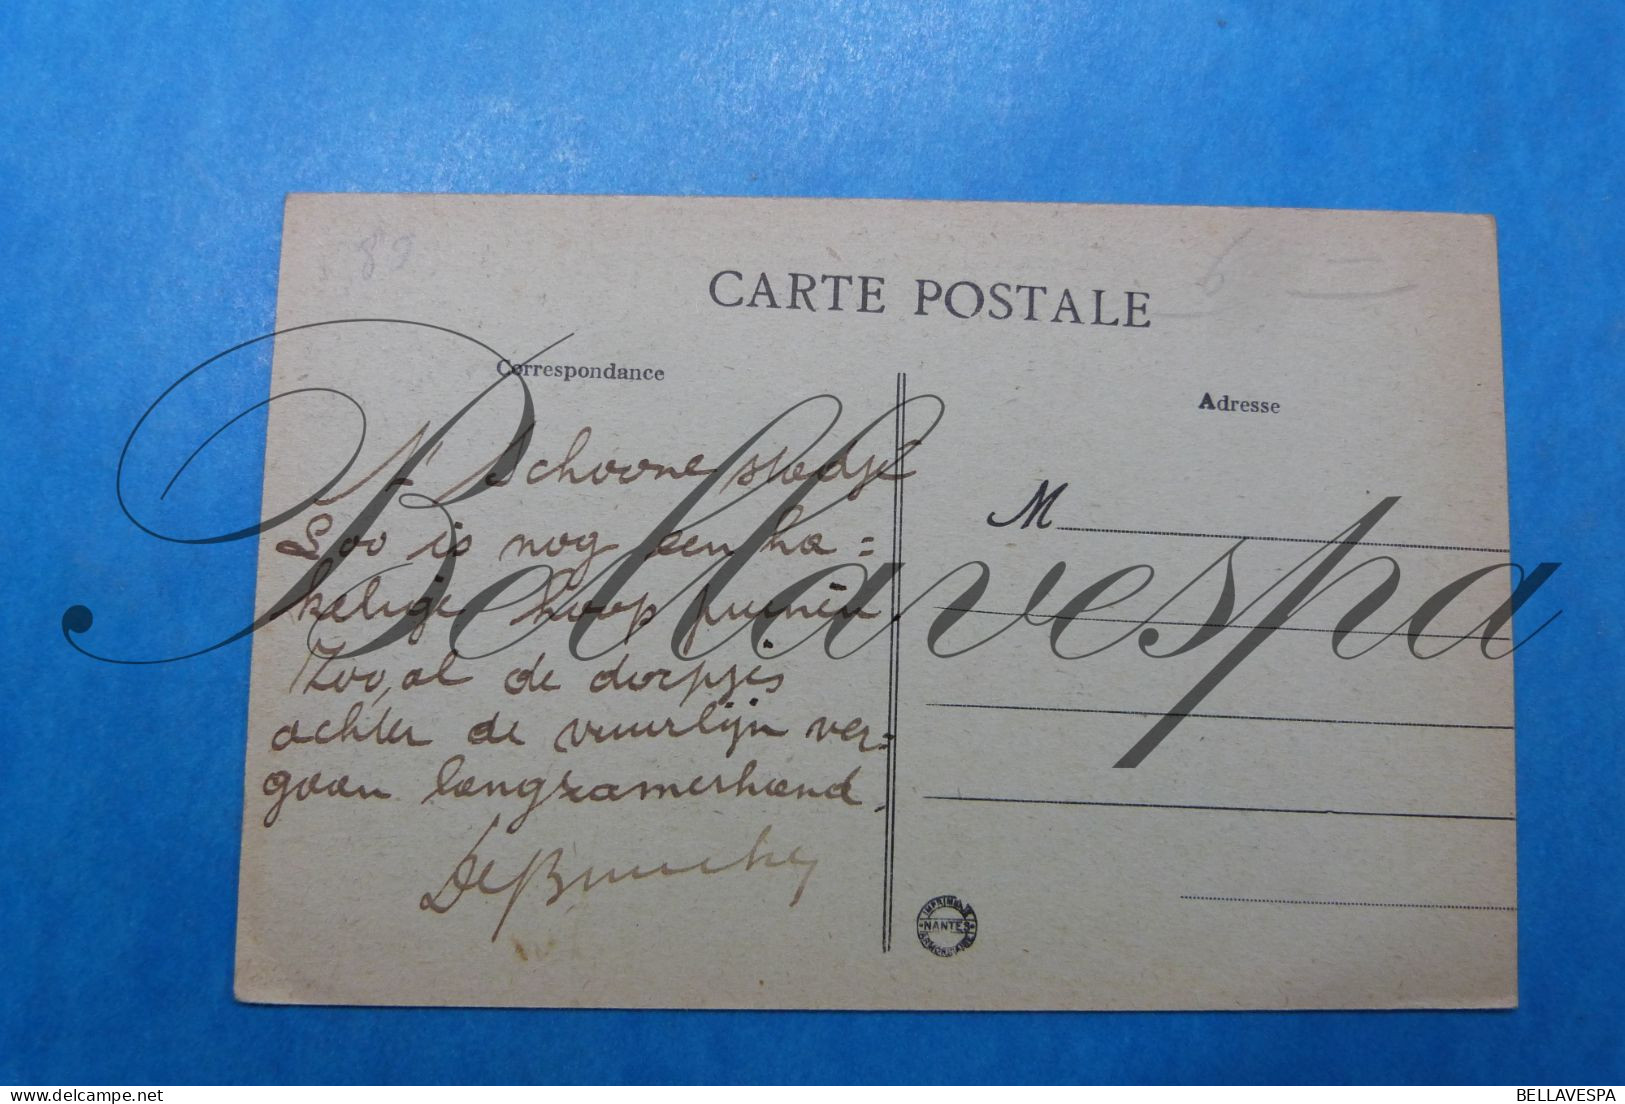 89
6 =
CARTE POSTALE
Correspondance
Adresse
'n Schoone stedje
Loo is nog een ha=
kelige hoop puinen
Zoo, al de dorpjes
achter de vuurlijn ver=
gaan langzamerhand.
M
NANTES
Bellavespa
BELLAVESPA